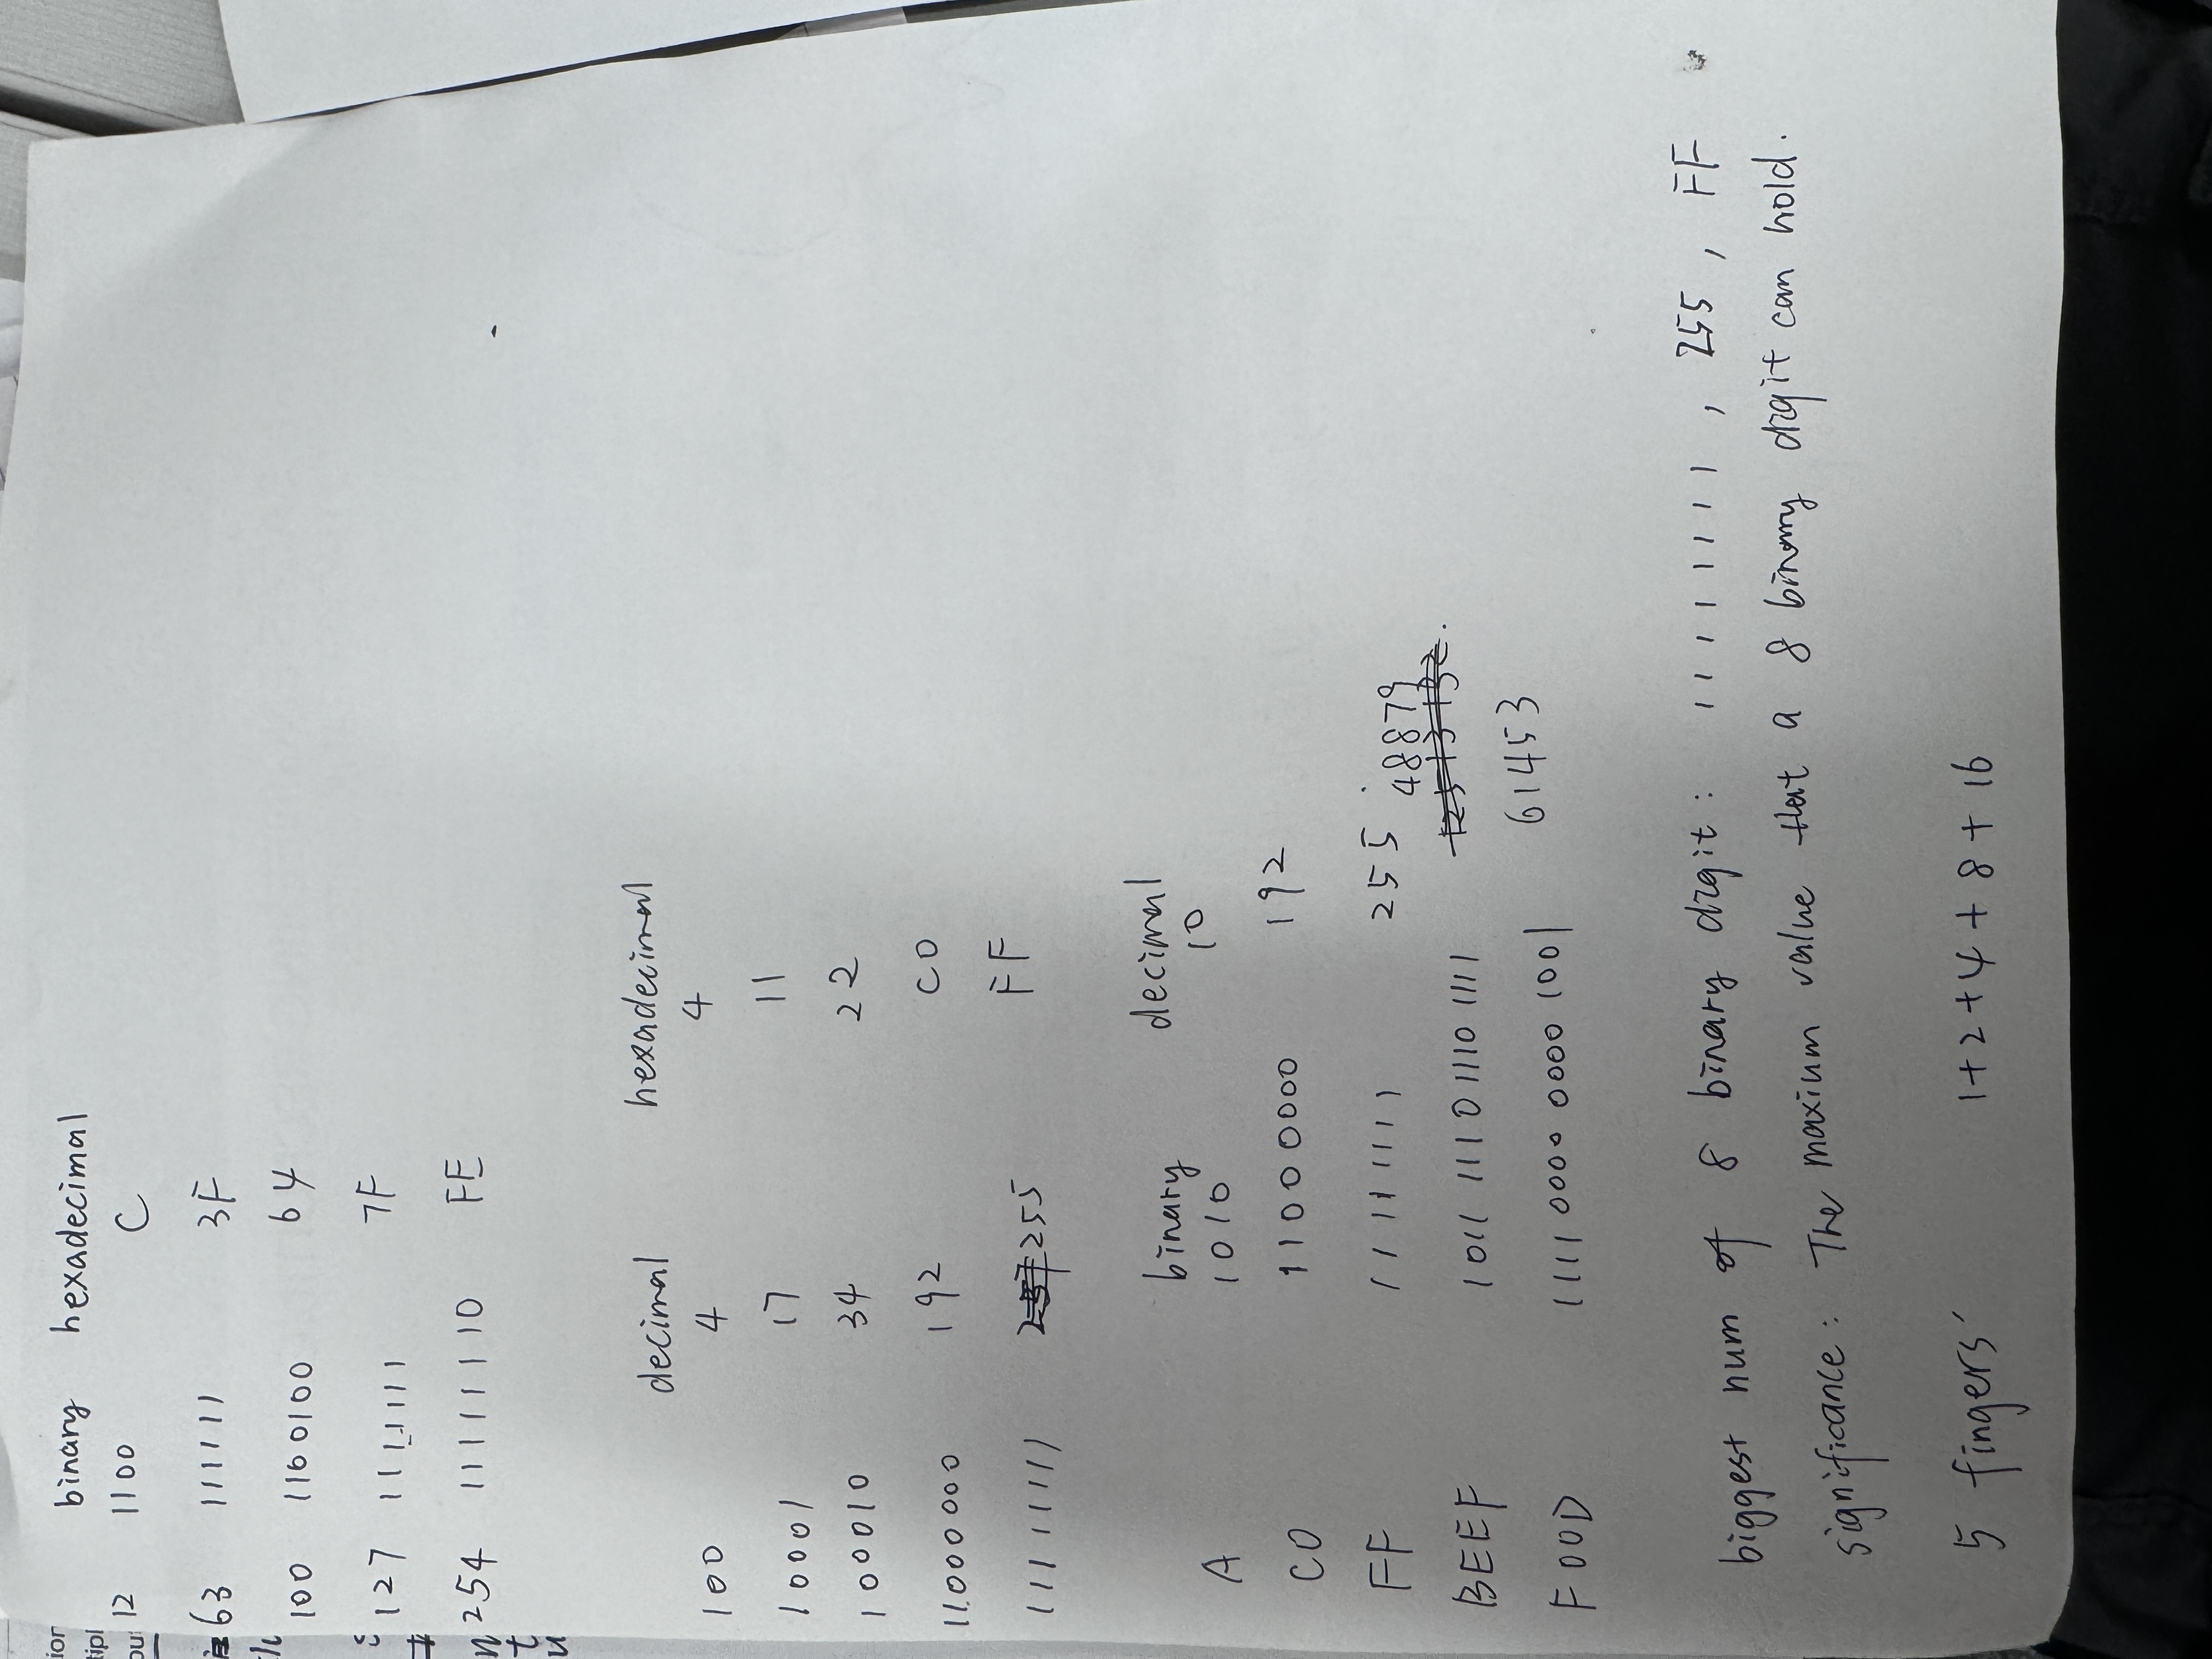 binary hexadecimal
12 1100 C
63 111111 3F
100 1100100 64
127 1111111 7F
254 11111110 FE
decimal hexadecimal
100 4 4
10001 17 11
100010 34 22
11000000 192 C0
11111111 255 FF
binary decimal
A 1010 10
C0 11000000 192
FF 11111111 255
BEEF 1011 1110 1110 1111 48879
F00D 1111 0000 0000 1001 61453
biggest num of 8 binary digit: 11111111, 255, FF
significance: The maxium value that a 8 binary digit can hold.
5 fingers' 1+2+4+8+16